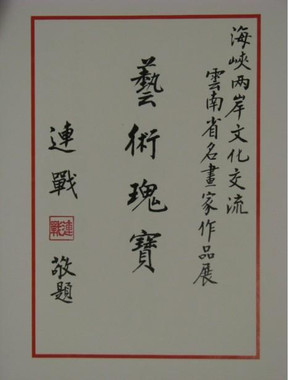 海峽两岸文化交流
雲南省名畫家作品展
藝術瑰寶
連戰
連戰
敬題